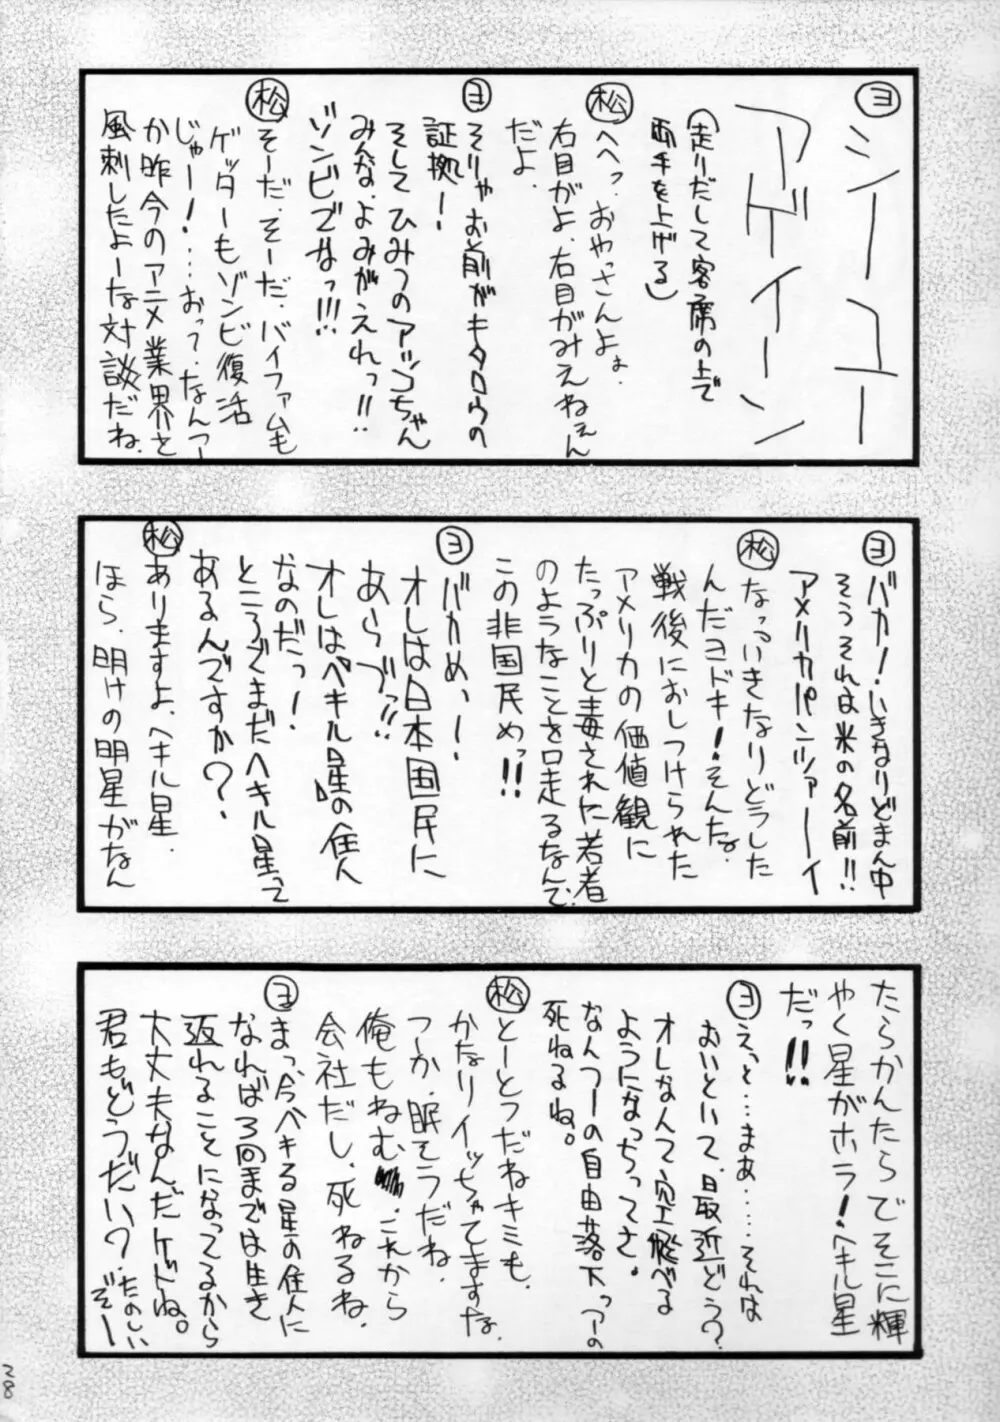 ヨ
シーユー
アゲイーン
(走りだして客席の上で
両手を上げる)
松
へへっ、おやっさんよぉ、
右目がよ、右目がみえねぇん
だよ、
ヨ
そりゃお前がキタロウの
証拠ー!
そしてひみつのアッコちゃん
みんな、よみがえれっ!!
ゾンビでなっ!!!
松
そーだ、そーだ、バイファムも
ゲッターもゾンビ復活
じゃー!…おって、なんつー
か昨今のアニメ業界を
風刺したよーな対談だね、
ヨ
バカ!いきなりどまん中
そうそれは米の名前!!
アメリカパンツァーーイ
松
なっ、いきなりどうした
んだヨドキ!そんな、
戦後におしつけられた
アメリカの価値観に
たっぷりと毒された若者
のようなことを口走るなんて、
この非国民めっ!!
ヨ
バカめ、ー!
オレは日本国民に
あらづっ!!
オレはペキル星の住人
なのだっー!
ところでまだヘキル星って
あるんですか?
松
ありますよ、ヘキル星、
ほら、明けの明星がなん
たらかんたらでそこに輝
やく星がホラ!ヘキル星
だっ!!
ヨ
えっと…まあ……それは
おいといて、最近どう?
オレなんて、空飛べる
ようになっちってさ。
なんつーの自由落下っつーの
死ねるね。
松
とーとつだねキミも、
かなりイッちゃてますな、
つーか、眠そうだね、
俺もねむ、これから
会社だし、死ねるね、
ヨ
まっ、今ペキる星の住人に
なれば3回までは生き
返れることになってるから
大丈夫なんだケドね。
君もどうだい?たのしい
ぞー
28